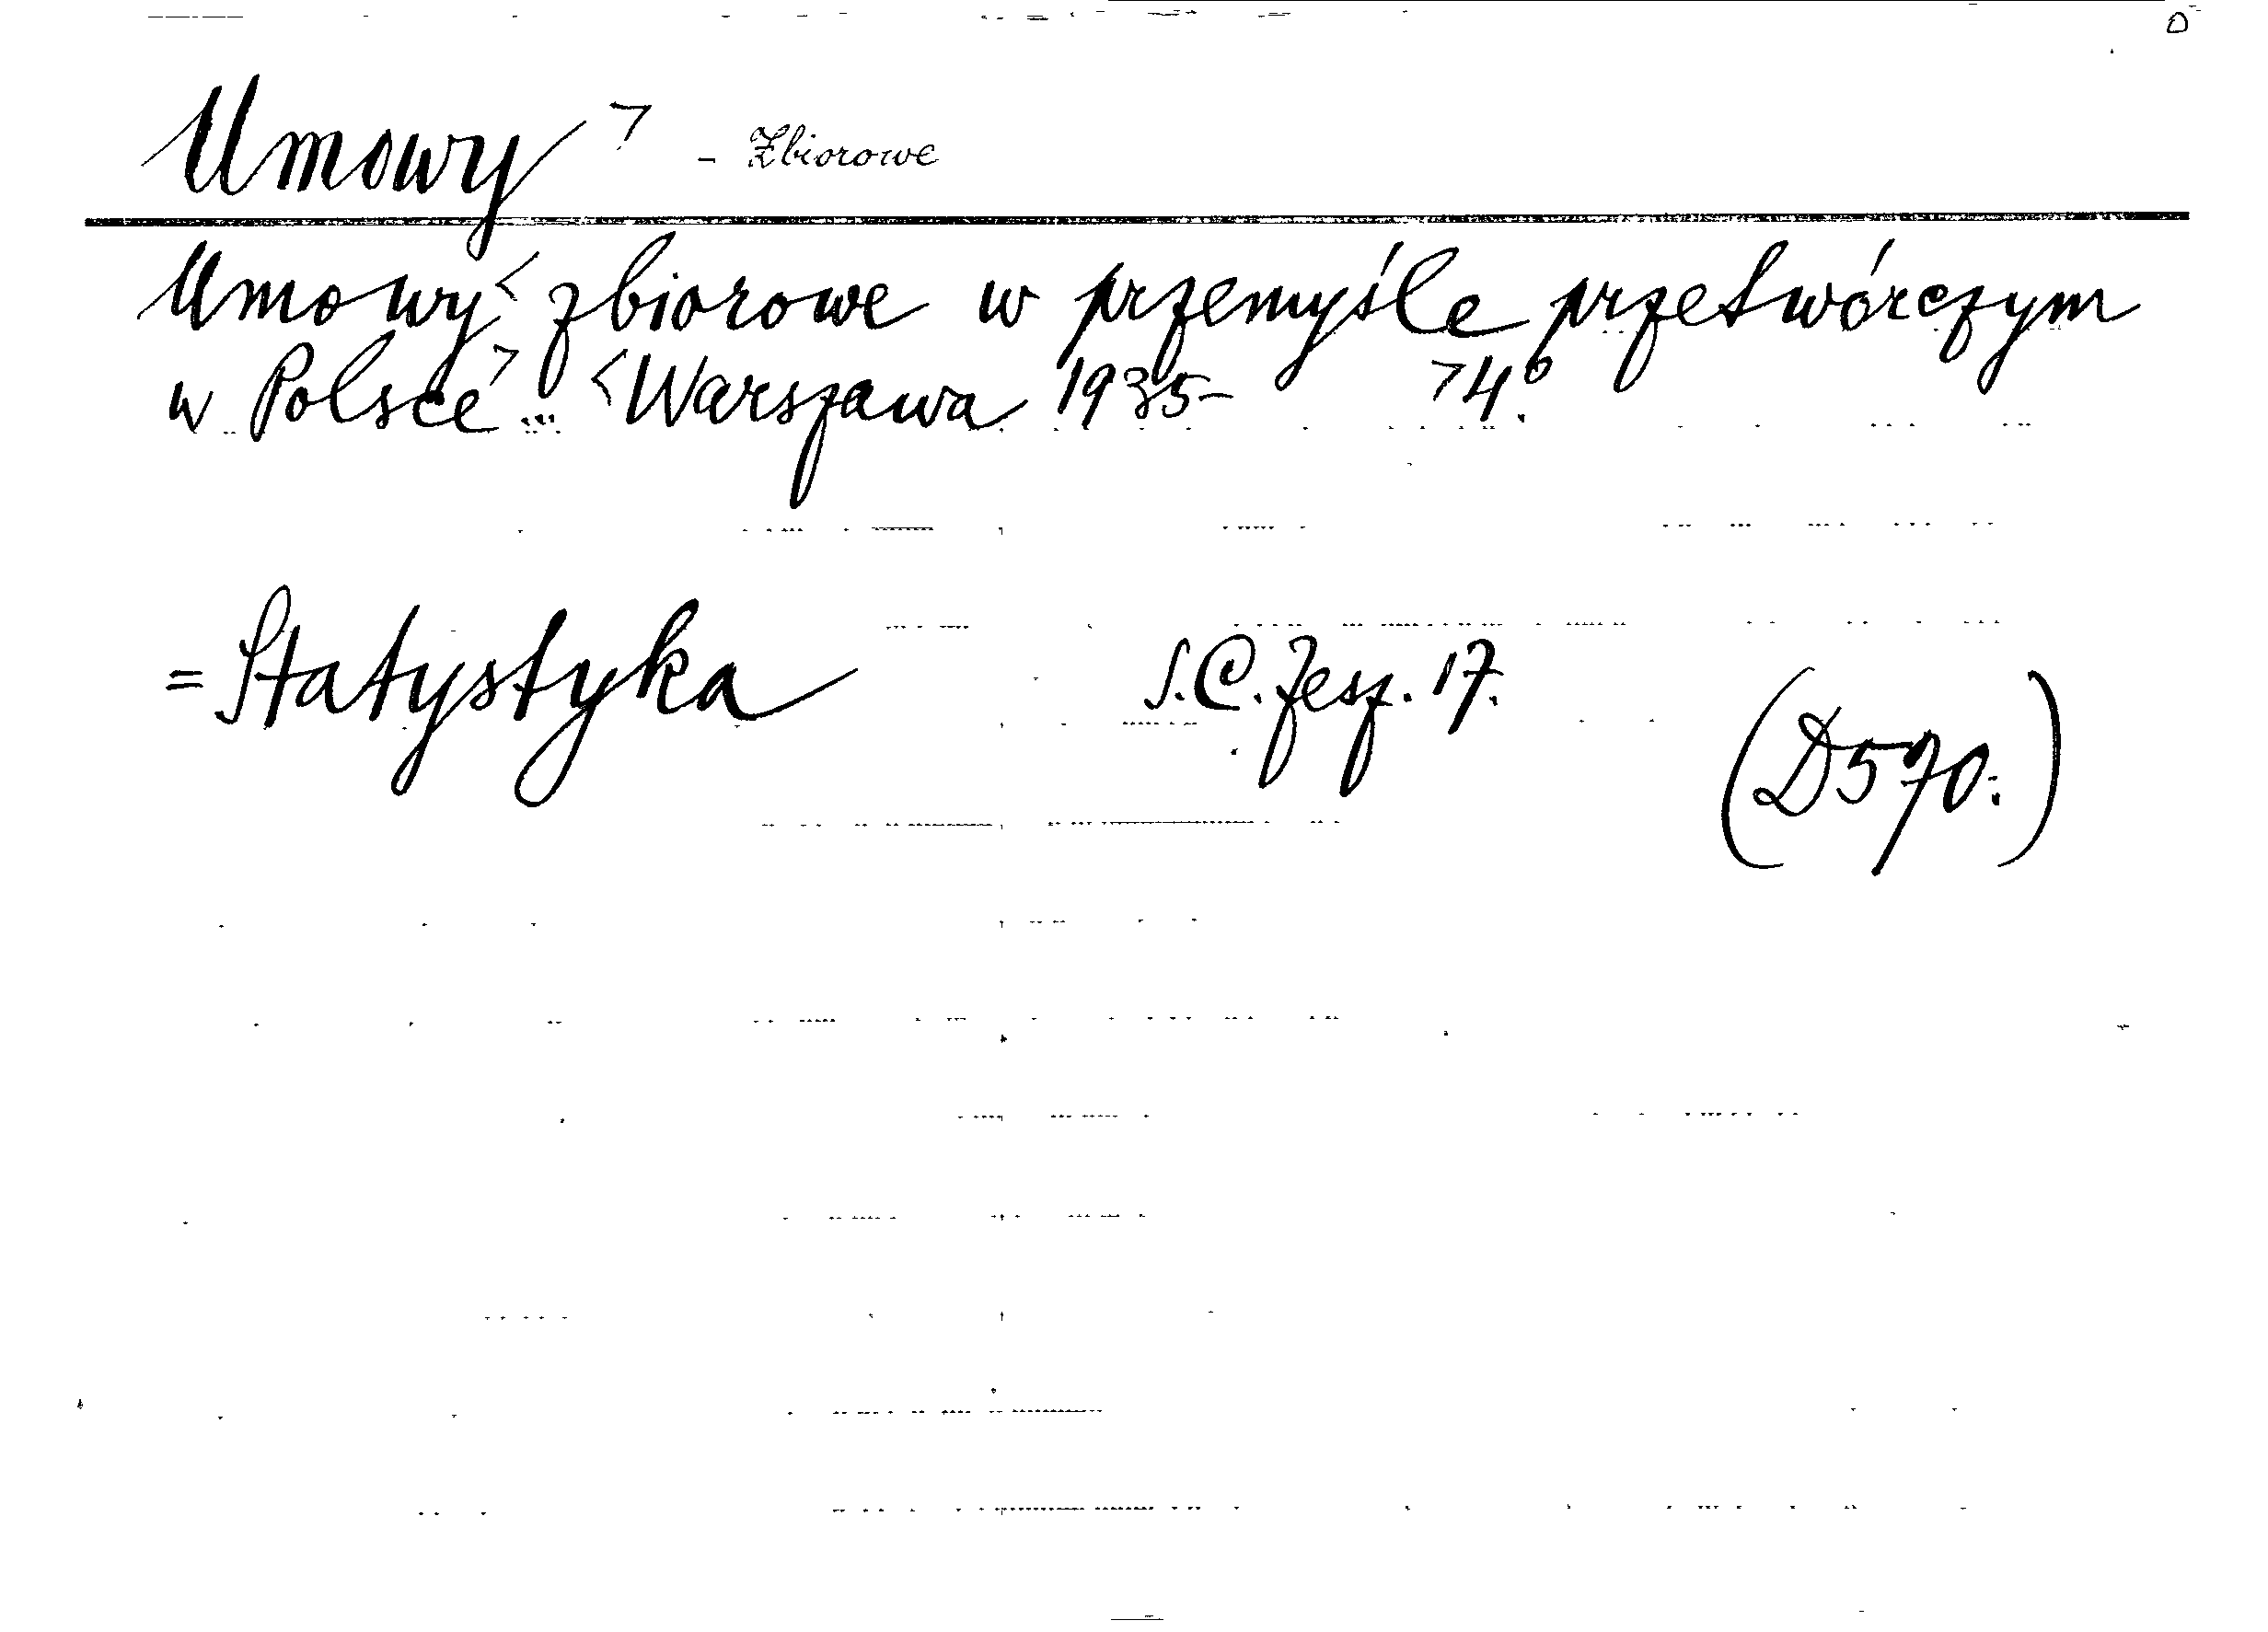 Umowy > - Zbiorowe
Umowy < zbiorowe w przemyśle przetwórczym
w Polsce > ... < Warszawa 1935- > 4°.
= Statystyka S. C. Zesz. 17.
(D570.)